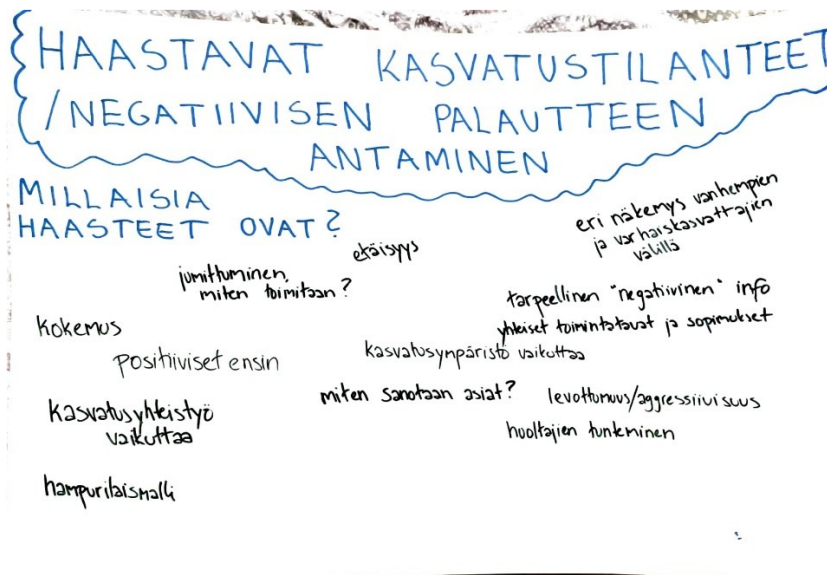 HAASTAVAT KASVATUSTILANTEET
/NEGATIIVISEN PALAUTTEEN
ANTAMINEN
MILLAISIA
HAASTEET OVAT?
etäisyys
eri näkemys vanhempien
ja varhaiskasvattajien
välillä
jumittuminen,
miten toimitaan?
tarpeellinen "negatiivinen" info
yhteiset toimintatavat ja sopimukset
kokemus
positiiviset ensin
kasvatusympäristö vaikuttaa
miten sanotaan asiat?
levottomuus/aggressiivisuus
kasvatusyhteistyö
vaikuttaa
huoltajien tunteminen
hampurilaismalli